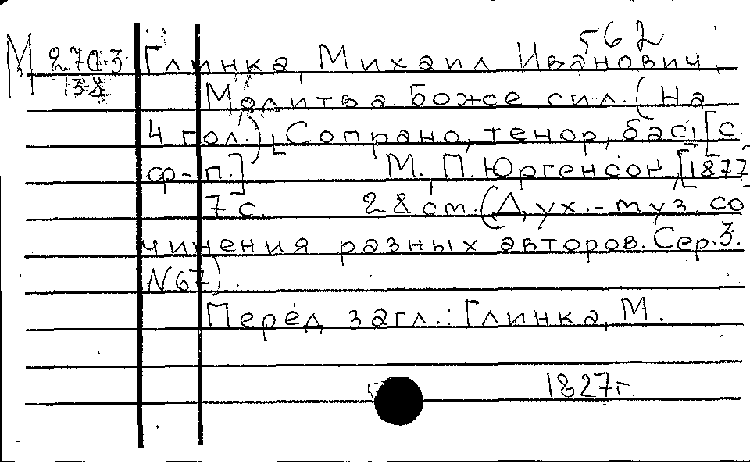 562
М 270-3 Глинка, Михаил Иванович.
Молитва Боже сил. (На
4 гол.) [Сопрано, тенор, бас] [с
ф-п.] М. П. Юргенсон [1877]
7 с. 28 см. (Дух.-муз. со
чинения разных авторов. Сер. 3.
N 67).
Перед загл.: Глинка, М.
1827г